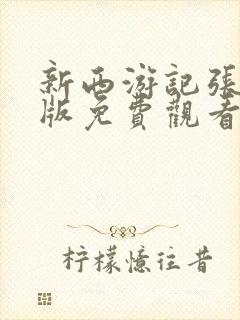 新西游記張
版免費觀看
柠檬憶往昔